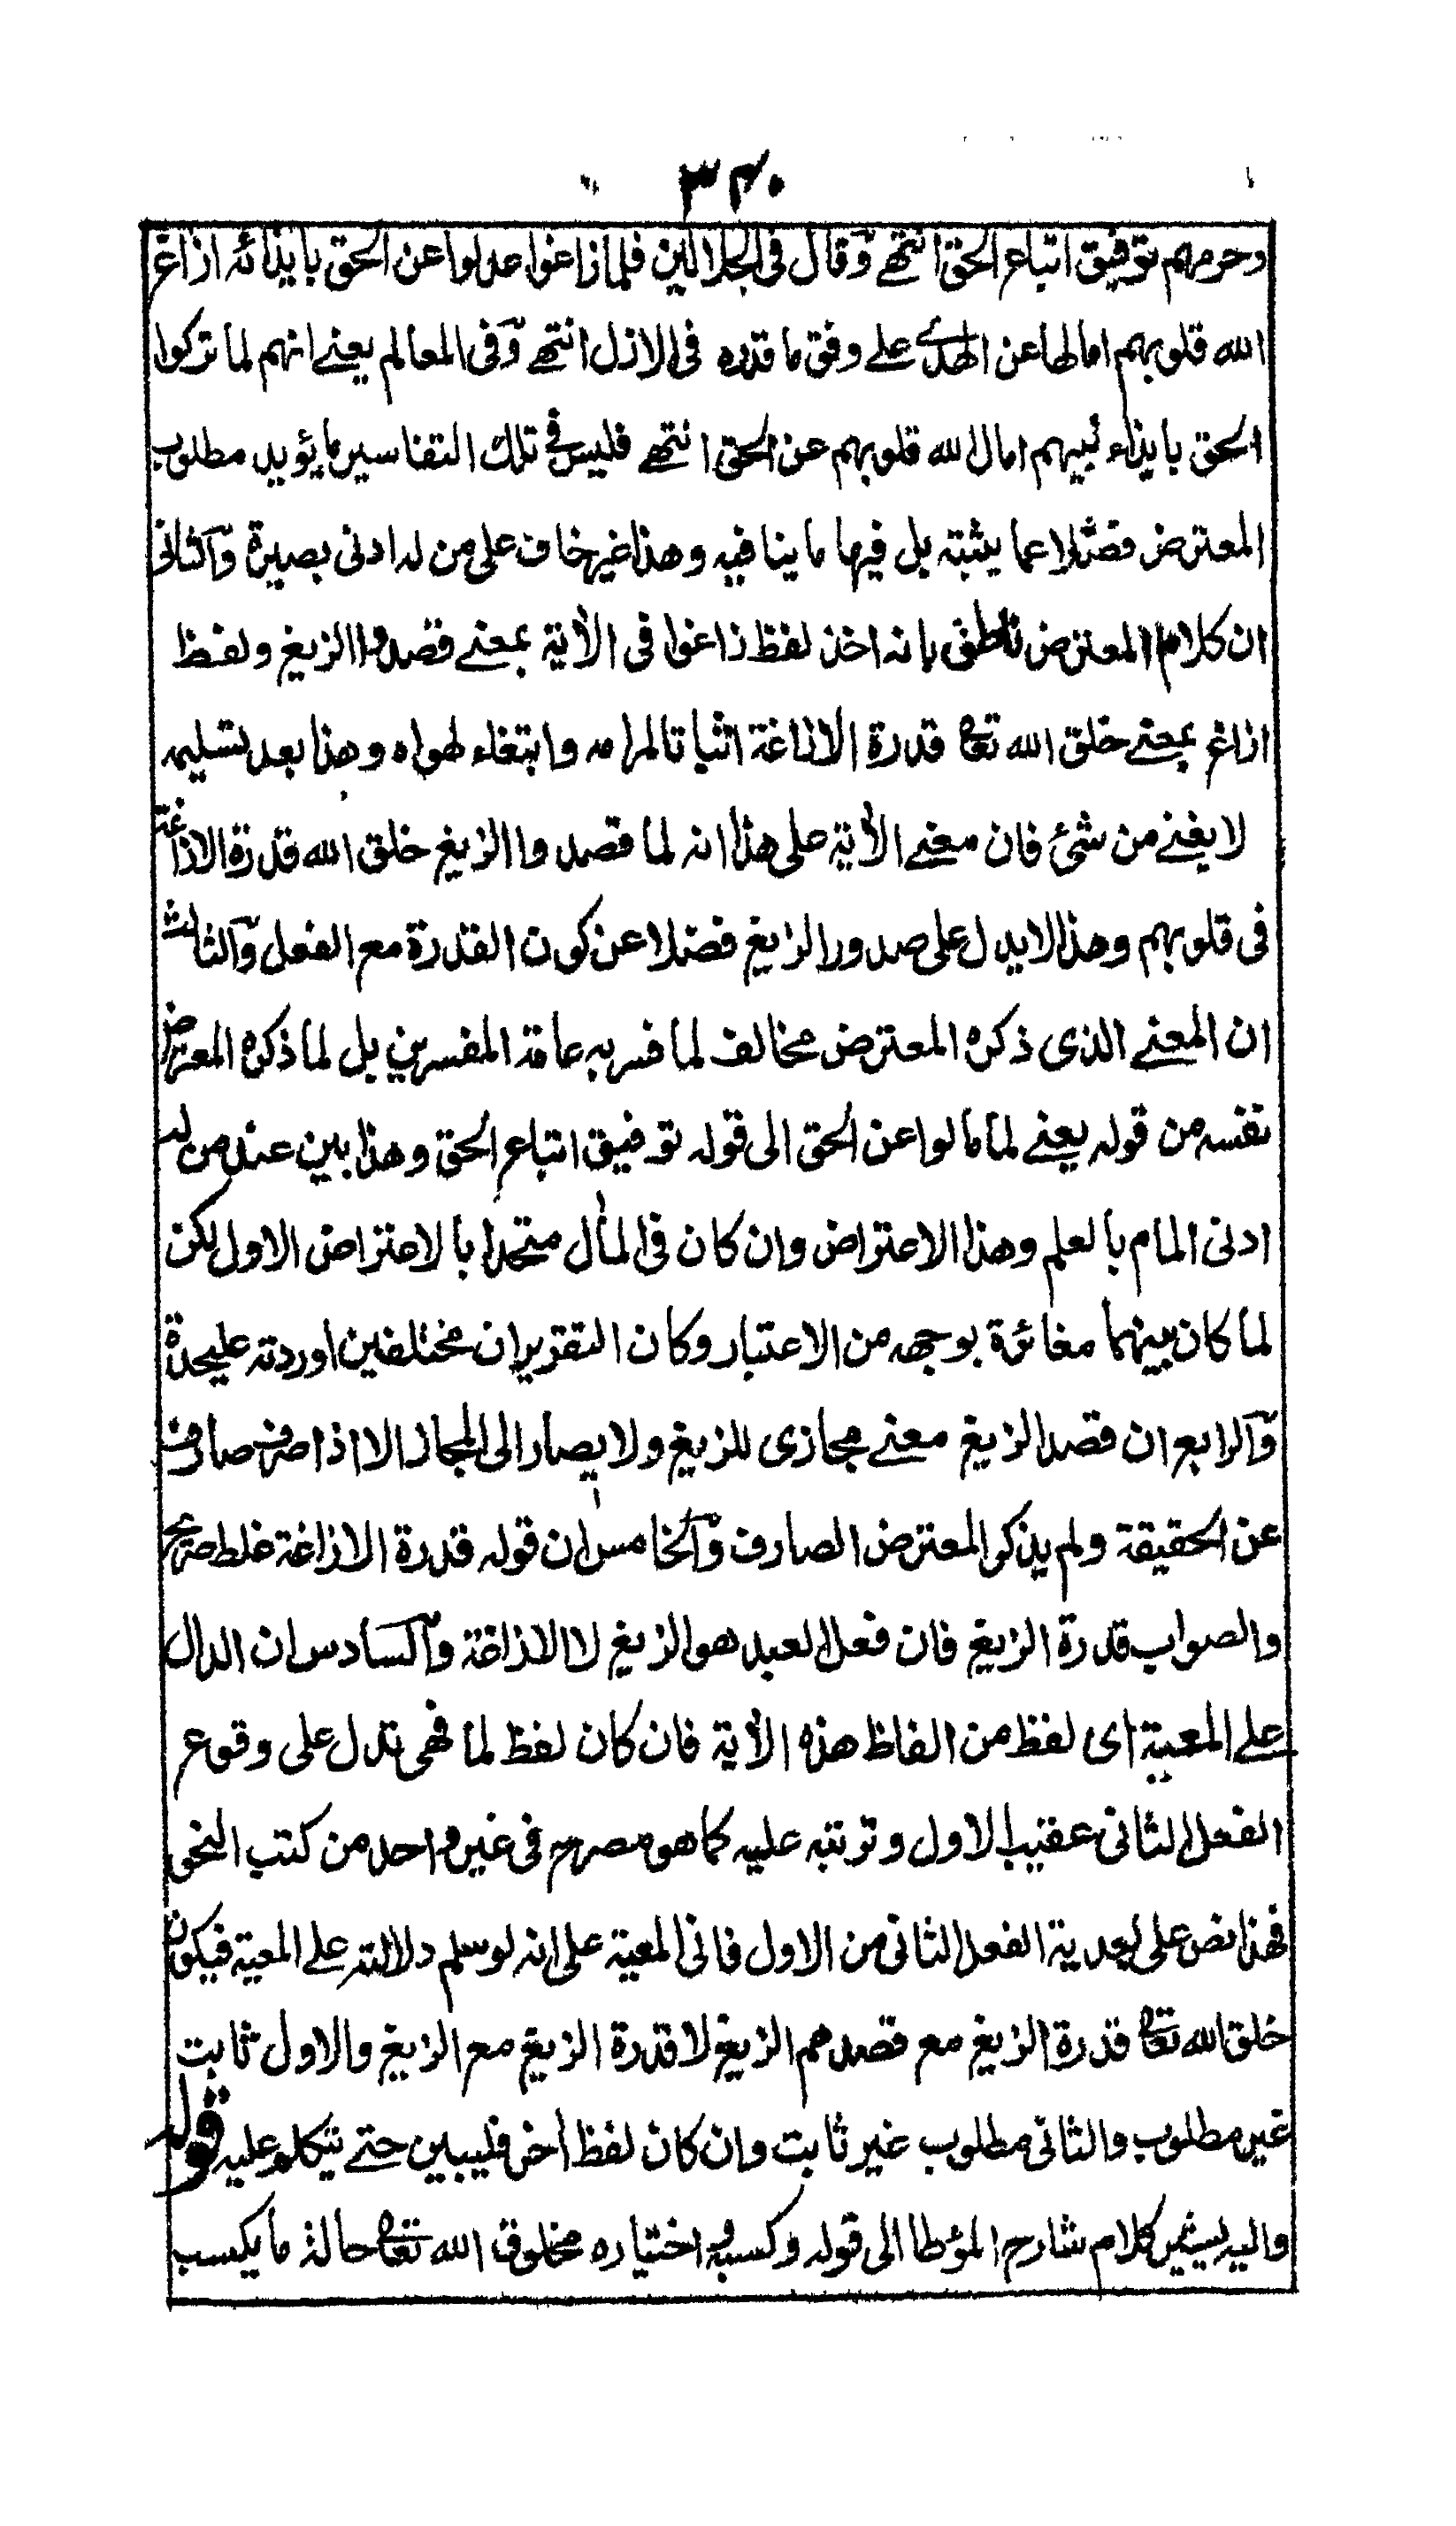 ٣٤٠
وحرمهم توفيق اتباع الحق انتهے وقال فی الجلالين فلما زاغوا عدلوا عن الحق بايذائه ازاغ
الله قلوبهم امالها عن الهدے علے وفق ما قدره فی الازل انتهے وفی المعالم يعنے انهم لما تركوا
الحق بايذاء نبيهم امال الله قلوبهم عن الحق انتهے فليس فے تلك التفاسير ما يؤيد مطلوب
المعترض فضلا عما يثبته بل فيها ما ينافيه وهذا غير خاف علی من له ادنی بصيرة والثانی
ان كلام المعترض ناطق بانه اخذ لفظ زاغوا فی الأية بمعنے قصدوا الزيغ ولفظ
ازاغ بمعنے خلق الله تعالٰے قدرة الازاغة اثباتا لمرامه وابتغاء لهواه وهذا بعد تسليمه
لا يغنے من شئ فان معنے الأية علی هذا انه لما قصدوا الزيغ خلق الله قدرة الازاغة
فی قلوبهم وهذا لا يدل علی صدور الزيغ فضلا عن كون القدرة مع الفعل والثالث
ان المعنے الذی ذكره المعترض مخالف لما فسر به عامة المفسرين بل لما ذكره المعترض
نفسه من قوله يعنے لما مالوا عن الحق الی قوله توفيق اتباع الحق وهذا بين عند من له
ادنی المام بالعلم وهذا الاعتراض وان كان فی المأل متحدا بالاعتراض الاول لكن
لما كان بينهما مغائرة بوجه من الاعتبار وكان التقريران مختلفين اوردته عليحدة
والرابع ان قصد الزيغ معنے مجازی للزيغ ولا يصار الی المجاز الا اذا صرف صارف
عن الحقيقة ولم يذكر المعترض الصارف والخامس ان قوله قدرة الازاغة غلط صريح
والصواب قدرة الزيغ فان فعل العبد هو الزيغ لا الازاغة والسادس ان الدال
علے المعية ای لفظ من الفاظ هذه الأية فان كان لفظ لما فهی تدل علی وقوع
الفعل الثانی عقيب الاول وترتبه عليه كما هو مصرح فی غير واحد من كتب النحو
فهذا نص علی بعدية الفعل الثانی من الاول فانی المعية علی انه لو سلم دلالته علے المعية فيكون
خلق الله تعالٰے قدرة الزيغ مع قصدهم الزيغ لا قدرة الزيغ مع الزيغ والاول ثابت
غير مطلوب والثانی مطلوب غير ثابت وان كان لفظ أخر فليبين حتے نتكلم عليه قوله
واليه يشير كلام شارح المؤطا الی قوله وكسبه واختياره مخلوق الله تعالٰے حالة ما يكسب